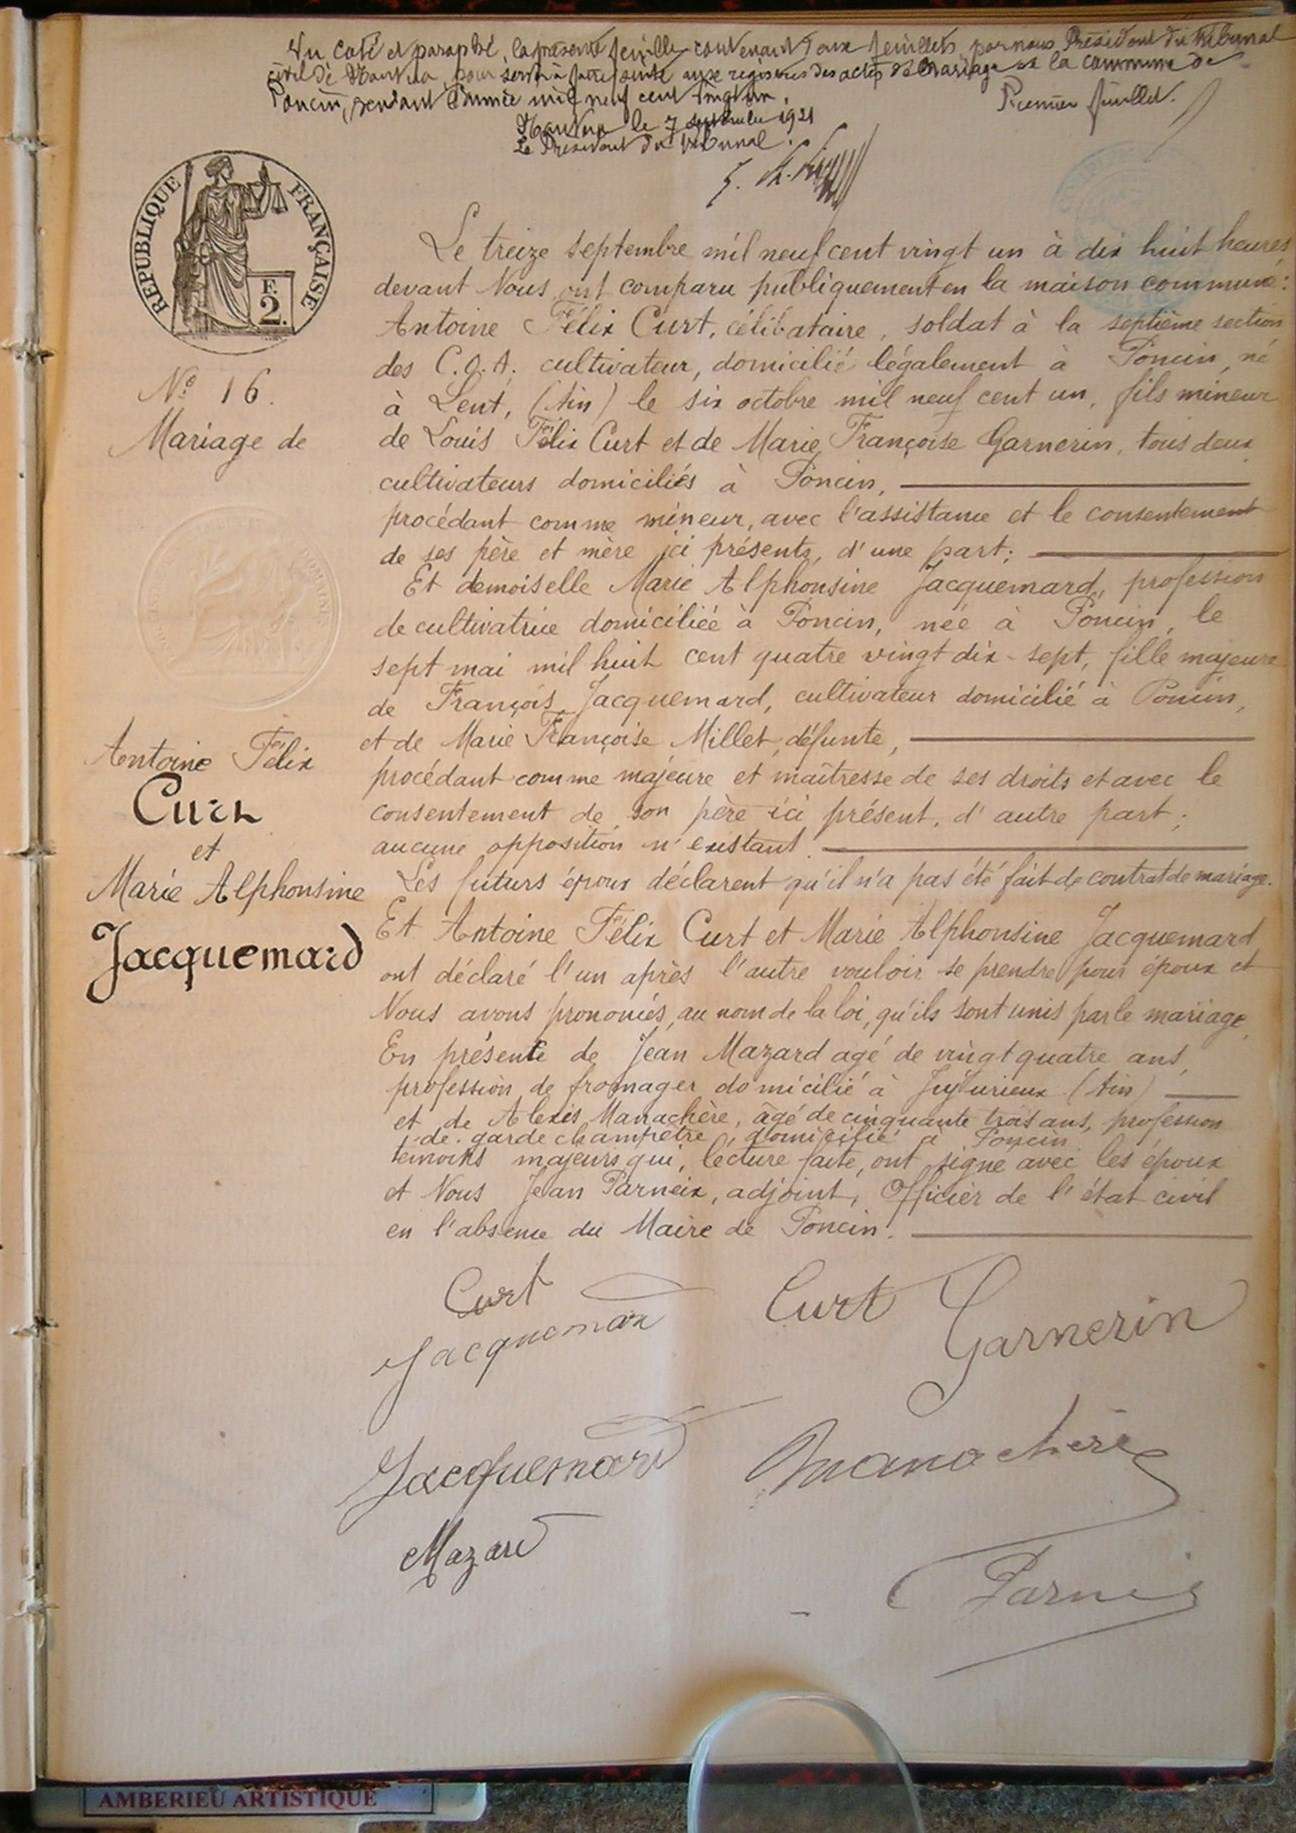 Vu coté et paraphé, la présente feuille contenant deux feuillets par nous Président du Tribunal
civil de Nantua, pour servir à faire suite aux registres des actes de Mariage de la commune de
Poncin, pendant l'année mil neuf cent vingt un.
Premier feuillet.
Nantua le 7 septembre 1921
Le Président du Tribunal.
REPUBLIQUE FRANÇAISE
F.
2.
Nº 16.
Mariage de
Antoine Félix
Curt
et
Marie Alphonsine
Jacquemard
Le treize septembre mil neuf cent vingt un à dix huit heures
devant Nous ont comparu publiquement en la maison commune:
Antoine Félix Curt, célibataire, soldat à la septième section
des C.O.A. cultivateur, domicilié légalement à Poncin, né
à Lent, (Ain) le six octobre mil neuf cent un, fils mineur
de Louis Félix Curt et de Marie Françoise Garnerin, tous deux
cultivateurs domiciliés à Poncin,
procédant comme mineur, avec l'assistance et le consentement
de ses père et mère ici présents, d'une part;
Et demoiselle Marie Alphonsine Jacquemard, profession
de cultivatrice domiciliée à Poncin, née à Poncin, le
sept mai mil huit cent quatre vingt dix-sept, fille majeure
de François Jacquemard, cultivateur domicilié à Poncin,
et de Marie Françoise Millet, défunte,
procédant comme majeure et maîtresse de ses droits et avec le
consentement de son père ici présent, d'autre part;
aucune opposition n'existant.
Les futurs époux déclarent qu'il n'a pas été fait de contrat de mariage.
Et Antoine Félix Curt et Marie Alphonsine Jacquemard
ont déclaré l'un après l'autre vouloir se prendre pour époux et
Nous avons prononcés, au nom de la loi, qu'ils sont unis par le mariage.
En présence de Jean Mazard agé de vingt quatre ans,
profession de fromager domicilié à Jujurieux (Ain)
et de Alexis Manachère, âgé de cinquante trois ans, profession
de garde champêtre, domicilié à Poncin
témoins majeurs qui, lecture faite, ont signé avec les époux
et Nous Jean Parneix, adjoint, Officier de l'état civil
en l'absence du Maire de Poncin.
Curt
Curt
Garnerin
Jacquemard
Jacquemard
Manachère
Mazard
Parneix
AMBERIEU ARTISTIQUE